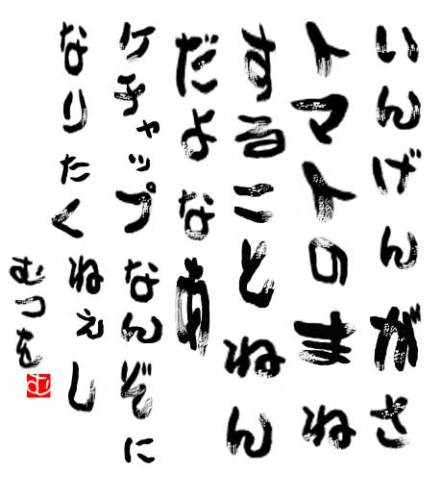 いんげんがさ
トマトのまね
することねん
だよなあ
ケチャップなんぞに
なりたくねぇし
むつを
む